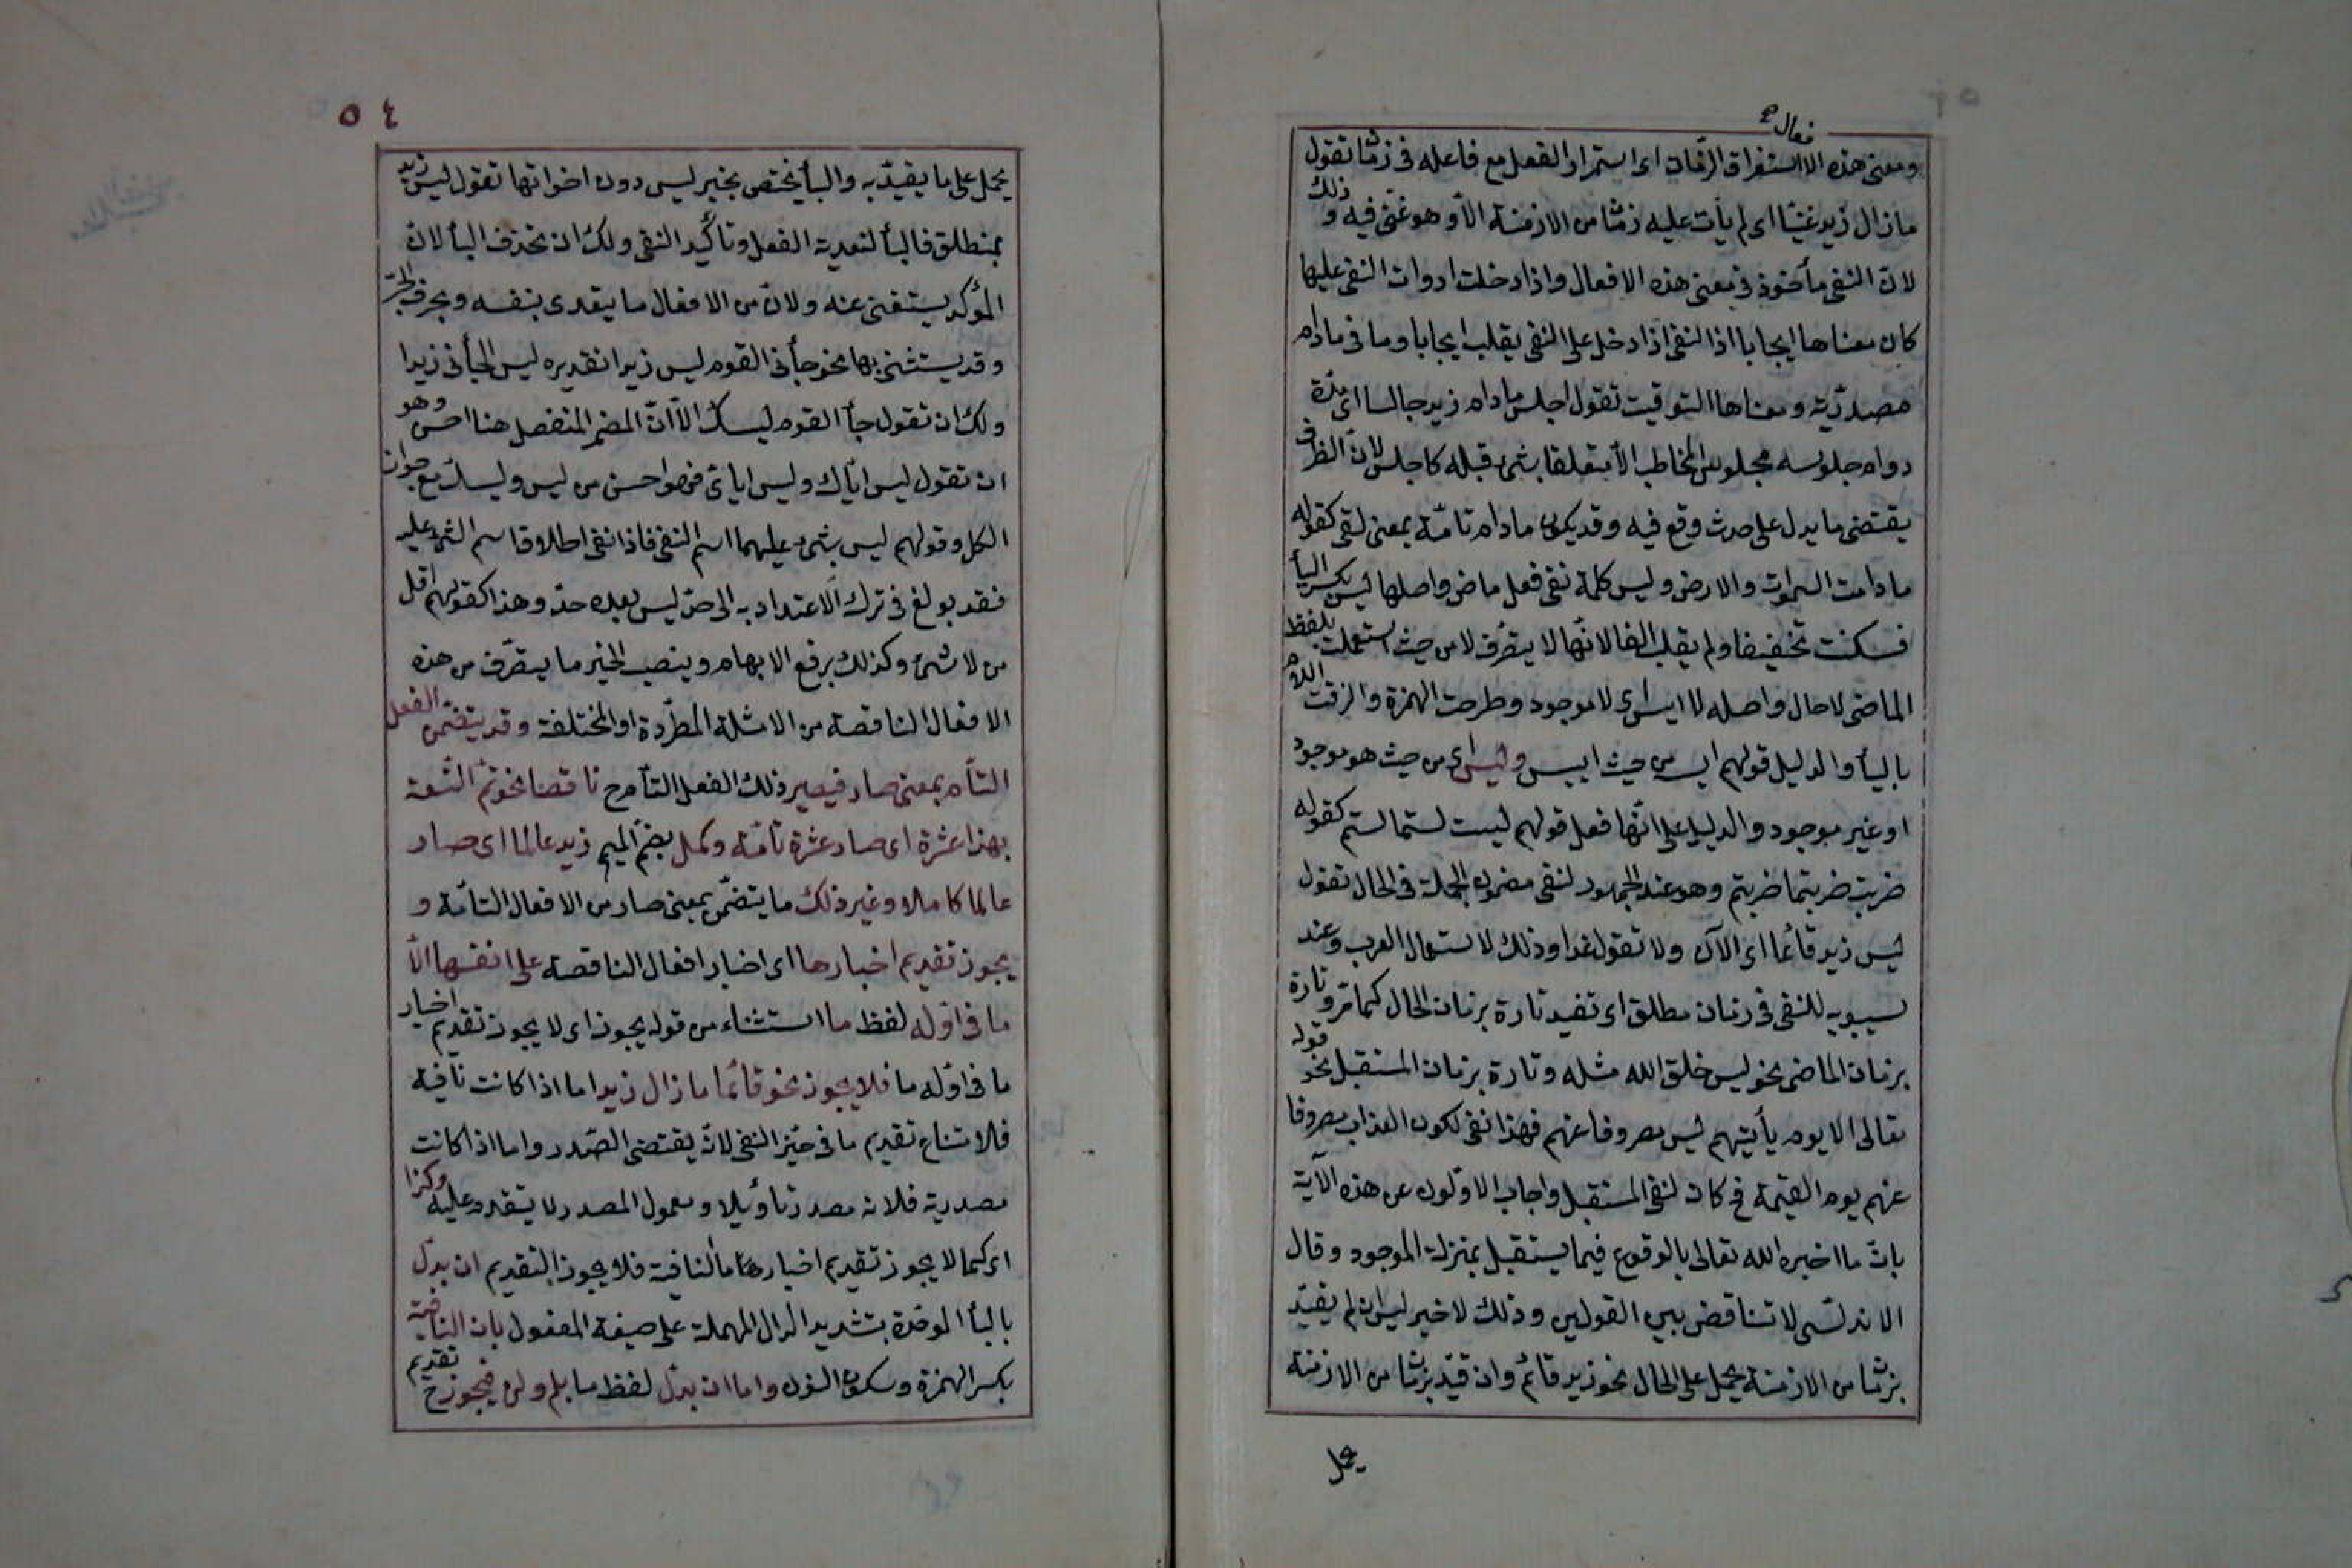 فعال صح
ومعنى هذه الا استغراق الزمان اى استمرار الفعل مع فاعله فى زمانه تقول
ما زال زيد غنيّا اى لم يأت عليه زمان من الازمنة الّا وهو غنى فيه وذلك
لانّ النفى مأخوذ فى معنى هذه الافعال واذا دخلت ادوات النفى عليها
كان معناها ايجابا اذ النفى اذا دخل على النفى يقلب ايجابا وما فى مادام
مصدريّة ومعناها التوقيت تقول اجلس مادام زيد جالسا اى مدّة
دوام جلوسه فجلوس المخاطب لا متعلقا بشئ قبله كاجلس لانّ الظرف
يقتضى ما يدل على حدث وقع فيه وقد يكون مادام تامّة بمعنى لقى كقوله
مادامت السموات والارض وليس كلمة نفى فعل ماض واصلها ليس بكسر اليأ
فسكنت تخفيفا ولم يقلب الفا لانّها لا يتصرّف لا من حيث استعملت بلفظ
الماضى لا حال واصله لا ايس اى لا موجود وطرحت الهمزة والزقت اللام
باليأ والدليل قولهم ايس من حيث ايس وليس اى من حيث هو موجود
او غير موجود والدليل على انّها فعل قولهم ليست لستما لستم كقوله
ضربت ضربتما ضربتم وهو عند الجمهور لنفى مضمون الجملة فى الحال تقول
ليس زيد قائما اى الآن ولا تقول غدا وذلك لاستعمال العرب وعند
سيبويه للنفى فى زمان مطلق اى تفيد تارة بزمان الحال كما مرّ وتارة
بزمان الماضى نحو ليس خلق الله مثله وتارة بزمان المستقبل نحو قوله
تعالى الا يوم يأتيهم ليس مصروفا عنهم فهذا نفى لكون العذاب مصروفا
عنهم يوم القيمة فح كان لنفى المستقبل واجاب الاوّلون عن هذه الآية
بانّ ما اخبره الله تعالى بالوقوع فيما يستقبل بمنزلة الموجود وقال
الاندلسى لا تناقض بين القولين وذلك لا خبر ليس ان لم يقيّد
بزمان من الازمنة يحمل على الحال نحو زيد قائم وان قيّد بزمان من الازمنة
يحمل
٥٤
يحمل على ما يقيّد به والبأ يختص بخبر ليس دون اخواتها تقول ليس زيد
بمنطلق فالبأ لتعدية الفعل وتأكيد النفى ولك ان تحذف البأ لانّ
المؤكد يستغنى عنه ولانّ من الافعال ما يتعدى بنفسه وبحرف الجرّ
وقد يستثنى بها نحو جأنى القوم ليس زيدا تقديره ليس الجأنى زيدا
ولك ان تقول جأ القوم ليسك الّا انّ المضمر المنفصل هنا احسن وهو
ان تقول ليس ايّاك وليس اياى فهو احسن من ليسى وليسك مع جواز
الكل وقولهم ليس بشئ عليهما اسم النفى فاذا نفى اطلاق اسم الشئ عليه
فقد بولغ فى ترك الاعتداد به الى حدّ ليس بعده حدّ وهذا كقولهم اقل
من لا شئ وكذلك يرفع الابهام وينصب الخبر ما يتصرّف من هذه
الافعال الناقصة من الامثلة المطرّدة او المختلفة وقد يتضمّن الفعل
التأم بمعنى صار فيصير ذلك الفعل التأم ح ناقصا نحو تمّ التسعة
بهذا عشرة اى صار عشرة تامّة وكمل بضمّ الميم زيد عالما اى صار
عالما كاملا وغير ذلك ما يتضمّن بمعنى صار من الافعال التامّة و
يجوز تقديم اخبارها اى اخبار افعال الناقصة على انفسها الّا
ما فى اوّله لفظ ما استثناء من قوله يجوز اى لا يجوز تقديم اخبار
ما فى اوّله ما فلا يجوز نحو قائما ما زال زيد اما اذا كانت نافية
فلامتناع تقديم ما فى حيّز النفى لانّه يقتضى الصّدر واما اذا كانت
مصدرية فلانه مصدر تأويلا ومعمول المصدر لا يتقدم عليه وكذا
اى كما لا يجوز تقديم اخبارها ما النافية فلا يجوز التقديم ان بدّل
بالبأ الموحّدة بتشديد الدال المهملة على صيغة المفعول بان النافية
بكسر الهمزة وسكون النون واما ان بدّل لفظ ما بلم ولن فيجوز ح تقديم